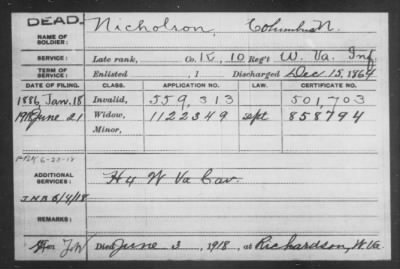 DEAD.
NAME OF SOLDIER: Nicholson, Columbus N.
SERVICE: Late rank, Co. K, 10 Reg't W. Va. Inf
TERM OF SERVICE: Enlisted , 1 Discharged Dec 15, 1864
DATE OF FILING. CLASS. APPLICATION NO. LAW. CERTIFICATE NO.
1886 Jan. 18 Invalid, 559,313 501,703
1918 June 21 Widow, 1122349 Sept 858794
Minor,
6-28-18
ADDITIONAL SERVICES: H 4 W Va Cav.
JNB 5/4/18
REMARKS:
Died June 3, 1918, at Richardson, W. Va.